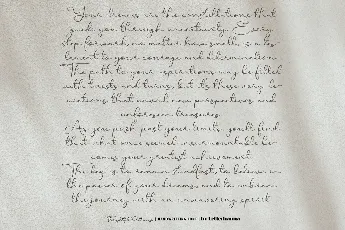 "Your dreams are the constellations that
guide you through uncertainty. Every
step forward, no matter how small, is a tes-
tament to your courage and determination.
"The path to your aspirations may be filled
with twists and turns, but it's these very de-
viations that unveil new perspectives and
unforeseen treasures.
"As you push past your limits, you'll find
that what once seemed insurmountable be-
comes your greatest achievement.
"The key is to remain steadfast, to believe in
the power of your dreams, and to embrace
the journey with an unwavering spirit.